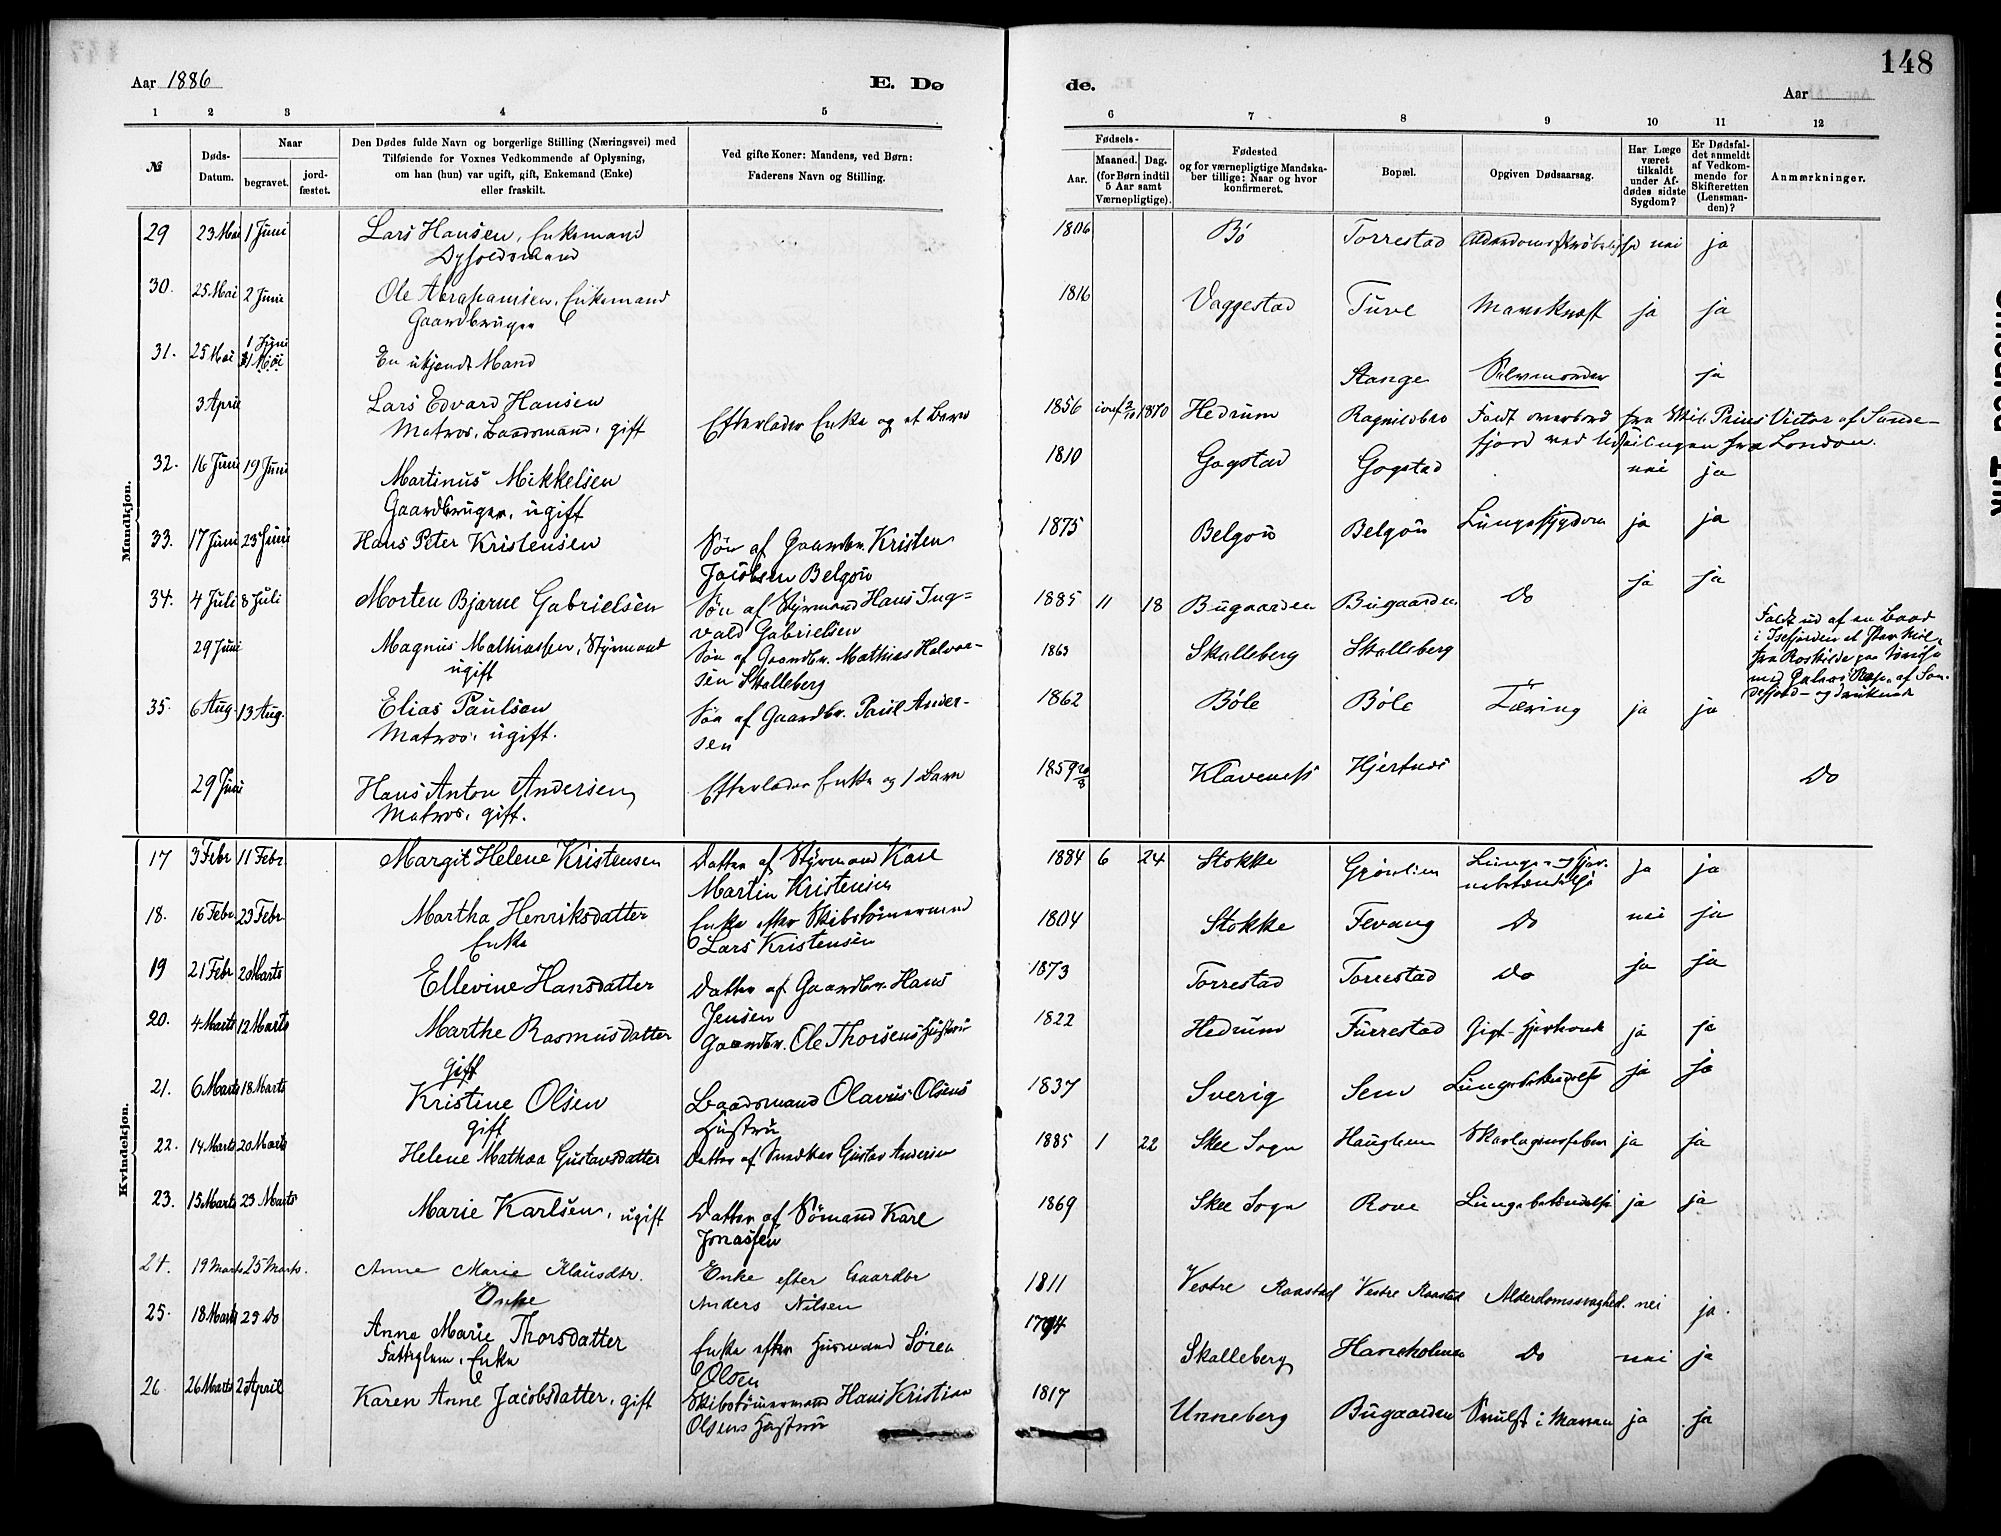 148
Aar 1886
E. Dø
de.
Aar
1 2 3 4 5 6 7 8 9 10 11 12
№
Døds-
Datum.
Naar
begravet.
jord-
fæstet.
Den Dødes fulde Navn og borgerlige Stilling (Næringsvei) med
Tilføiende for Voxnes Vedkommende af Oplysning,
om han (hun) var ugift, gift, Enkemand (Enke)
eller fraskilt.
Ved gifte Koner: Mandens, ved Børn:
Faderens Navn og Stilling.
Fødsels-
Aar.
Maaned. Dag.
(for Børn indtil
5 Aar samt
Værnepligtige).
Fødested
og for værnepligtige Mandska-
ber tillige: Naar og hvor
konfirmeret.
Bopæl.
Opgiven Dødsaarsag.
Har Læge
været
tilkaldt
under Af-
dødes sidste
Sygdom?
Er Dødsfal-
det anmeldt
af Vedkom-
mende for
Skifteretten
(Lensman-
den)?
Anmærkninger.
Mandkjøn.
29 23 Mai 1 Juni Lars Hansen, Enkemand 1806 Bö Torrestad nei ja
30. 25 Mai 2 Juni Ole Abrahamsen, Enkemand 1816 Vaggestad Ture Marvkræft ja ja
Gaardbruger
31. 25 Mai 1 Juni En ukjendt Mand Stange Selvmorder ja
31 Mai
3 April Lars Edvard Hansen Efterlader Enke og et Barn 1856 1870 Hedrum Ragnildbro Faldt overbord fra Skib. Prins Victor af Sande-
Matros, Baadsmand, gift fjord ved Udseilingen fra London.
32. 16 Juni 19 Juni Martinus Mikkelsen 1810 Gogstad Gogstad nei ja
Gaardbruger, ugift
33. 17 Juni 23 Juni Hans Peter Kristensen Sön af Gaardbr. Kristen 1875 Belgöu Belgöu Lungesygdom ja ja
Jacobsen Belgöu
34. 4 Juli 8 Juli Morten Bjarne Gabrielsen Sön af Styrmand Hans Ing- 1885 11 18 Bugaarden Bugaarden Do ja ja
vald Gabrielsen
29 Juni Magnus Mathiassen, Styrmand Sön af Gaardbr. Mathias Halvor- 1863 Skalleberg Skalleberg Faldt ud af en Baad
ugift sen Skalleberg i Isefjorden et Par Mil
fra Roskilde
35. 6 Aug. 13 Aug. Elias Paulsen Sön af Gaardbr. Paul Ander- 1862 Böle Böle Tæring ja ja
Matros, ugift. sen
29 Juni Hans Anton Andersen, Efterlader Enke og 1 Barn 1859 20/8 Klaveness Hjertnæs Do
Matros, gift.
Kvindekjøn.
17 3 Febr 11 Febr Margit Helene Kristensen Datter af Styrmand Karl 1884 6 24 Stokke Grönlien ja ja
Martin Kristensen
18. 16 Febr 23 Febr Martha Henriksdatter Enke efter Skibstömermand 1804 Stokke Fevang Do nei ja
Enke Lars Kristensen
19 21 Febr 2 Marts Ellevine Hansdatter Datter af Gaardbr. Hans 1873 Torrestad Torrestad Do ja ja
Jensen
20. 4 Marts 12 Marts Marthe Rasmusdatter Gaardbr. Ole Thorsens Hustru 1822 Hedrum Furrestad ja ja
gift
21. 6 Marts 18 Marts Kristine Olsen Baadsmand Olavus Olsens 1837 Sverig Sem Lungebetændelse ja ja
gift Hustru
22. 14 Marts 20 Marts Helene Mathea Gustavsdatter Datter af Smedker Gustav Andersen 1885 1 22 Skee Sogn Haughem Skarlagensfeber ja ja
23. 15 Marts 23 Marts Marie Karlsen, ugift Datter af Sömand Karl 1869 Skee Sogn Rove Lungebetændelse ja ja
Jonassen
24. 19 Marts 25 Marts. Anne Marie Klausdtr. Enke efter Gaardbr 1811 Vestre Raastad Vestre Raastad Alderdomssvaghed. nei ja.
Enke Anders Nilsen
25. 18 Marts 25 Do Anne Marie Thorsdatter Enke efter Husmand Sören 1794 Skalleberg Haneholmen Do nei ja
Fattiglem, Enke Olsen
26. 26 Marts 2 April Karen Anne Jacobsdatter, gift Skibstömermand Hans Kristian 1817 Unneberg Bugaarden Svulst i Maven ja ja
Olsens Hustru